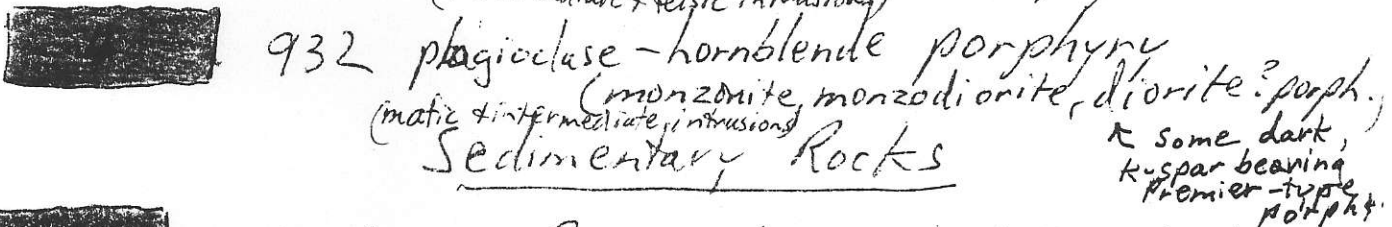 & felsic intrusions)
932 plagioclase-hornblende porphyry
(monzonite, monzodiorite, diorite? porph.,
(mafic & intermediate intrusions)
& some dark,
Sedimentary Rocks
k-spar bearing
Premier-type
porphs.